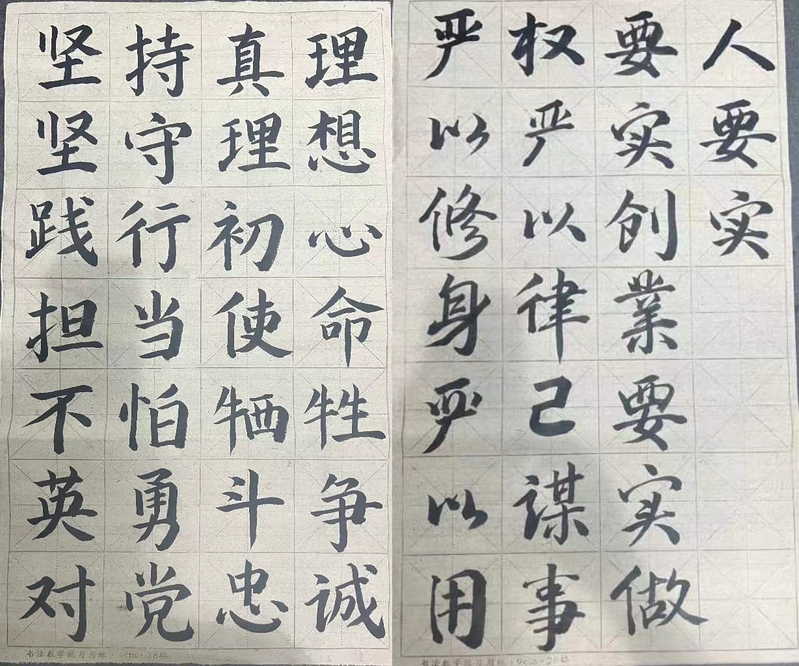 坚持真理
坚守理想
践行初心
担当使命
不怕牺牲
英勇斗争
对党忠诚
严以修身严以用
权严以律己谋事
要实创業要实做
人要实